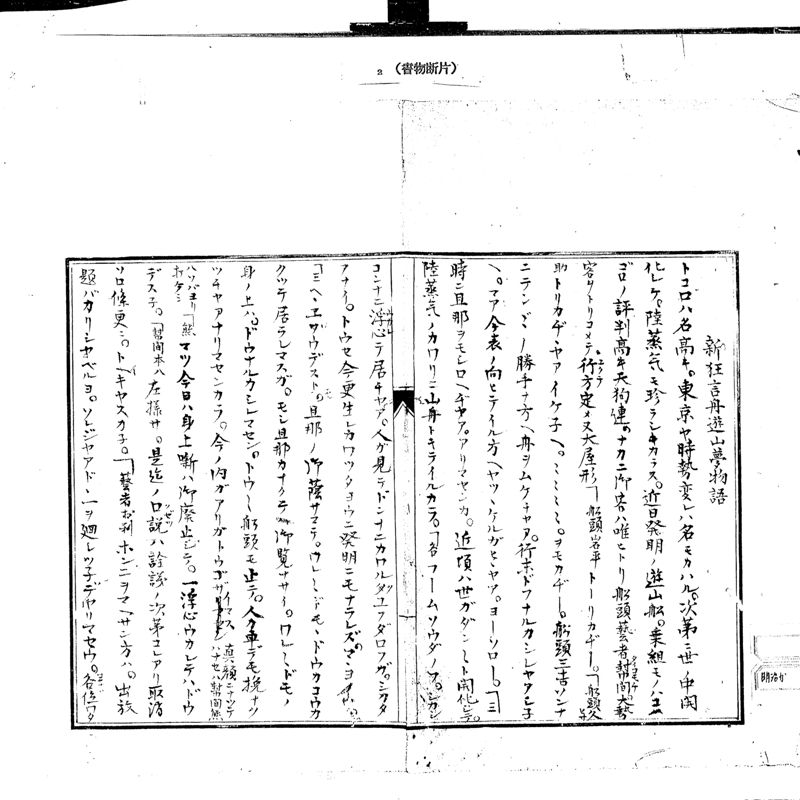 2 (書物断片)
新狂言舟遊山夢物語
トコロハ名高キ。東京ヤ時勢変レハ名モカハル。次第ニ世ノ中開
化シケ。陸蒸気モ珍ラシキカラス。近日発明ノ遊山船。乗組モノハコム
ゴロノ評判高キ天狗連ノナカニ御客ハ唯ヒトリ船頭藝者幇間大勢
容リトリコメテ行方定メヌ大屋形「船頭岩平トーリカヂー。「船頭久
助トリカヂヤアイケ子ヘ。ミミミミ。ヲモカヂー。船頭三吉ソンナ
ニテンデンノ勝手ナ方ヘ舟ヲムケチャア。行ホドフナルカシレヤアシ子
ヘ。マア今表ノ向ヒテイル方ヘヤツヽケルガヒヽヤア。ヨーソロー。「三
時ニ旦那ヲモシロヘヂヤアアリマセンカ。近頃ハ世ガダンミト開化シテ。
陸蒸気ノカワリニ山舟トキテイルカラ。「客フームソウダノフ。シカシ
コンナニ浮心デ居チヤア。人ガ見テドンナニカワルクユアダロフガ。シカタ
アナイ。トウセ今更生レカワツタヨウニ発明ニモナラレズノマヽヨ
「三ヘヽエザウデストモ旦那ノ御蔭サマデ。ワレミドモヽドウカコウカ
クツテ居ラレマスガ。モシ旦那カナクテ御覧ナサイ。ワレミドモノ
身ノ上ハ。ドウナルカシレマセン。ドウミ船頭モ止テ。人力車デモ挽ナツ
ツチヤアナリマセンカラ。今ノ内ガアリガトウゴザイマス 真顔ニナツテ
ハナセハ幇間熊
ハツバヨリ「熊マツ今日ハ身上噺ハ御廃止シテ。一浮心ウカレテハドウ
デス子。「幇間木八左様サ。是迄ノ口説ハ詮議ノ次第コレアリ取消
ソロ條更ニ。トヘキヤスカ子。「藝者お利ホンニヲマヘサン方ハ。出放
題バカリシヤベルヨ。ソレジヤアドヽ一ヲ廻シツ子デヤリマセウ。各位ワタ
明治か